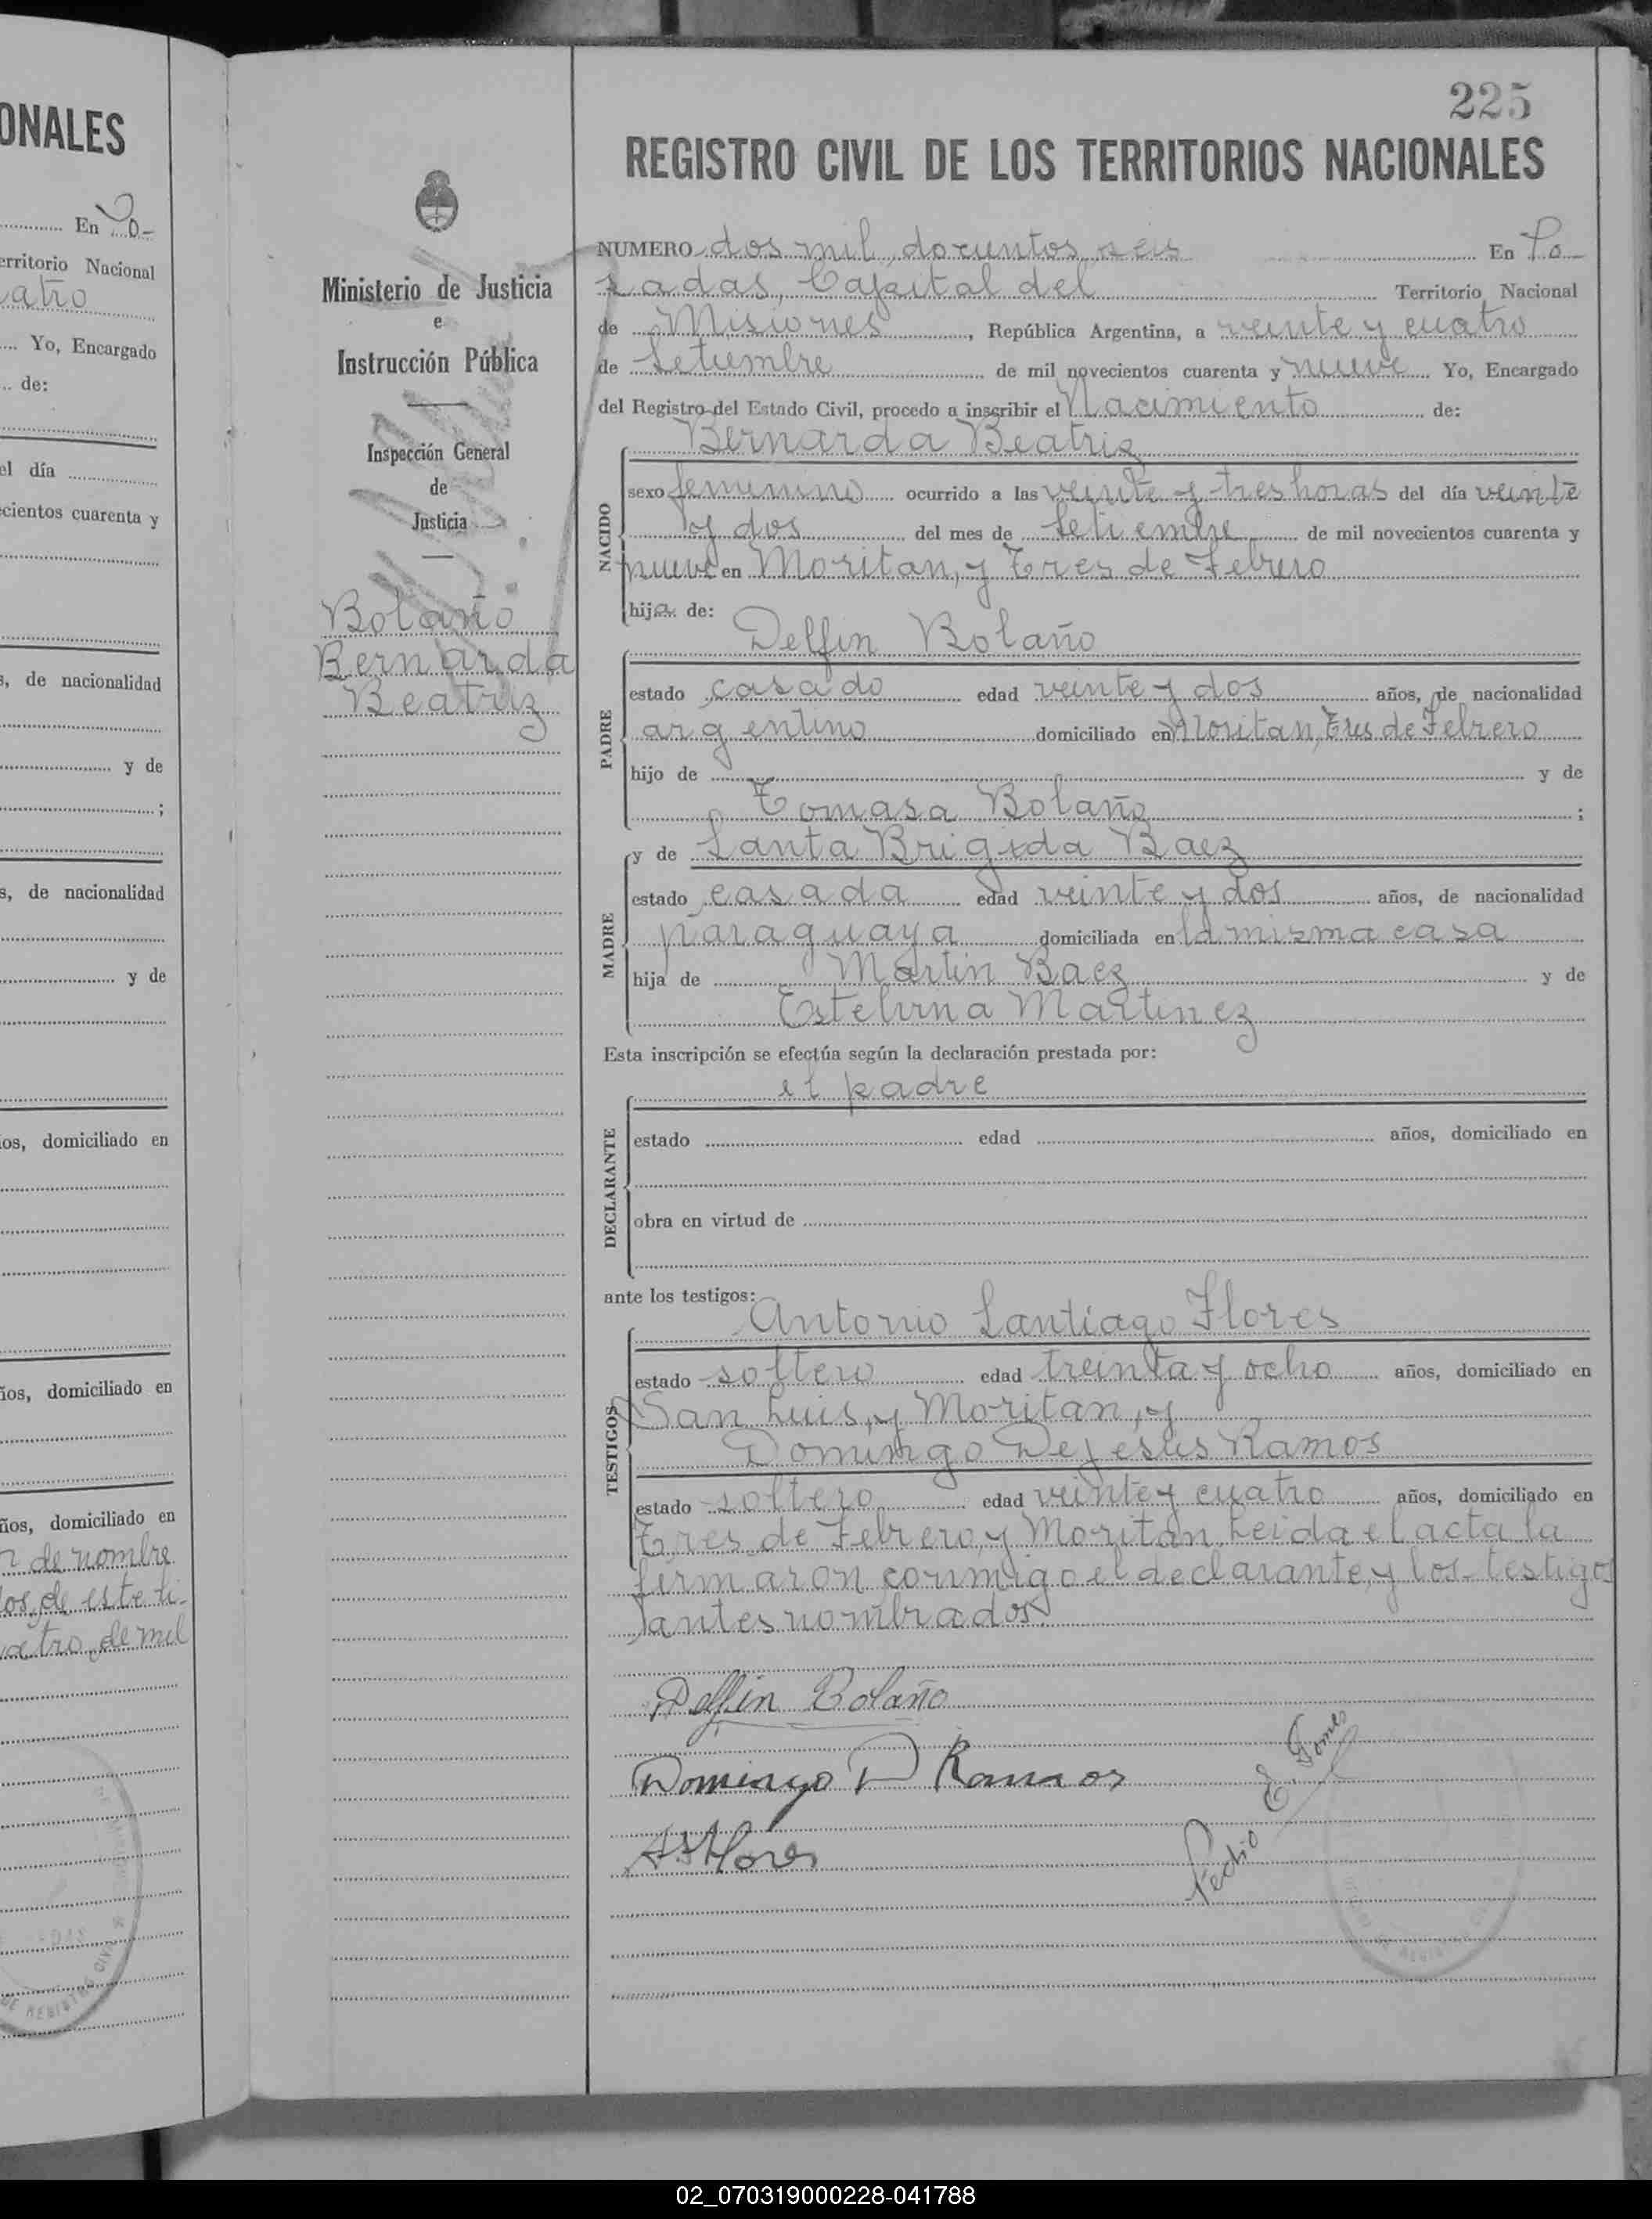 ONALES
En Po-
erritorio Nacional
atro
Yo, Encargado
de:
el día
cientos cuarenta y
s, de nacionalidad
y de
;
s, de nacionalidad
y de
ios, domiciliado en
ños, domiciliado en
ños, domiciliado en
de nombre
los, de este ti-
atro, de mil
DE REGISTRO CIVIL
Ministerio de Justicia
e
Instrucción Pública
Inspección General
de
Justicia
Bolaño
Bernarda
Beatriz
225
REGISTRO CIVIL DE LOS TERRITORIOS NACIONALES
NUMERO dos mil, docientos seis En Po-
sadas, Capital del Territorio Nacional
de Misiones, República Argentina, a veinte y cuatro
de Setiembre de mil novecientos cuarenta y nueve Yo, Encargado
del Registro del Estado Civil, procedo a inscribir el Nacimiento de:
Bernarda Beatriz
NACIDO
sexo femenino ocurrido a las veinte y tres horas del día veinte
y dos del mes de Setiembre de mil novecientos cuarenta y
nueve en Moritan, y Tres de Febrero
hija de:
Delfin Bolaño
PADRE
estado casado edad veinte y dos años, de nacionalidad
argentino domiciliado en Moritan, Tres de Febrero
hijo de y de
Tomasa Bolaño ;
y de Santa Brigida Baez
MADRE
estado casada edad veinte y dos años, de nacionalidad
paraguaya domiciliada en la misma casa
hija de Martin Baez y de
Estelvina Martinez
Esta inscripción se efectúa según la declaración prestada por:
el padre
DECLARANTE
estado edad años, domiciliado en
obra en virtud de
ante los testigos:
Antonio Santiago Flores
TESTIGOS
estado soltero edad treinta y ocho años, domiciliado en
San Luis, y Moritan, y
Domingo Dejesus Ramos
estado soltero edad veinte y cuatro años, domiciliado en
Tres de Febrero, y Moritan. Leida el acta la
firmaron conmigo el declarante, y los testigos
antes nombrados.
Delfin Bolaño
Domingo D Ramos
A S Flores
Pedro E. Gomes
02_070319000228-041788